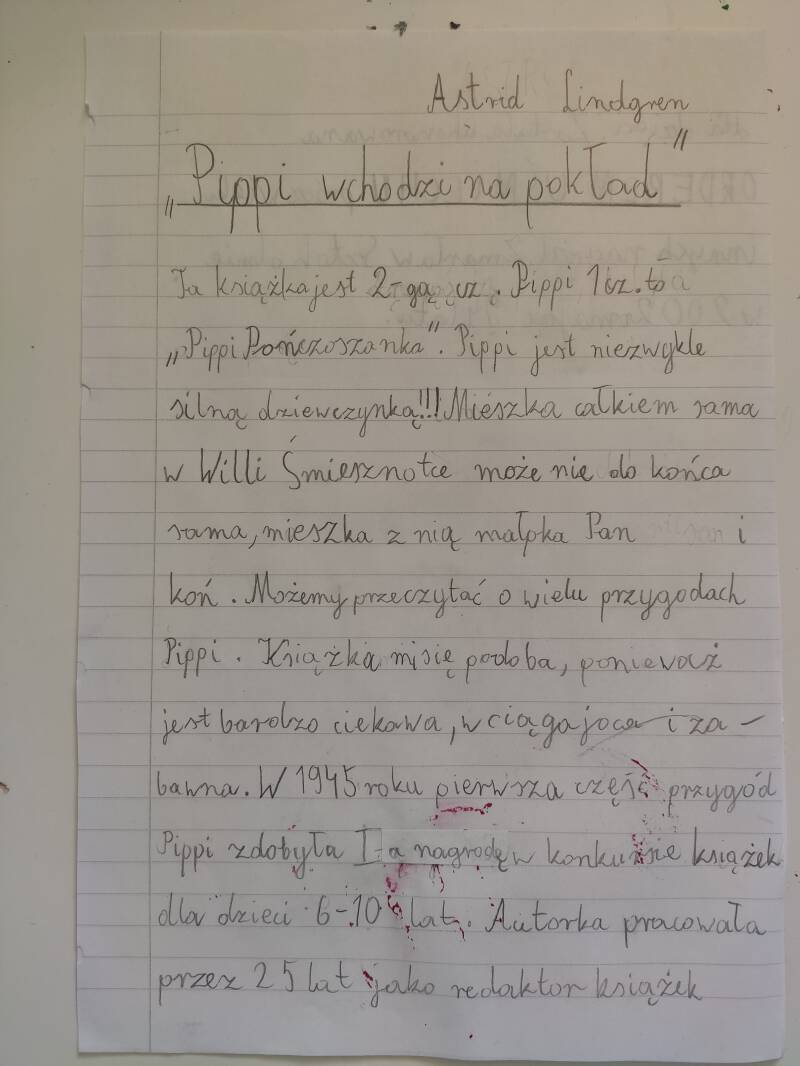 Astrid Lindgren
„Pippi wchodzi na pokład"
Ta książka jest 2-gą cz. Pippi 1 cz. to
„Pippi Pończoszanka". Pippi jest niezwykle
silną dziewczynką!!! Mieszka całkiem sama
w Willi Śmiesznotce może nie do końca
sama, mieszka z nią małpka Pan i
koń. Możemy przeczytać o wielu przygodach
Pippi. Książka mi się podoba, ponieważ
jest bardzo ciekawa, wciągająca i za-
bawna. W 1945 roku pierwsza część przygód
Pippi zdobyła I-ą nagrodę w konkursie książek
dla dzieci 6-10 lat. Autorka pracowała
przez 25 lat jako redaktor książek